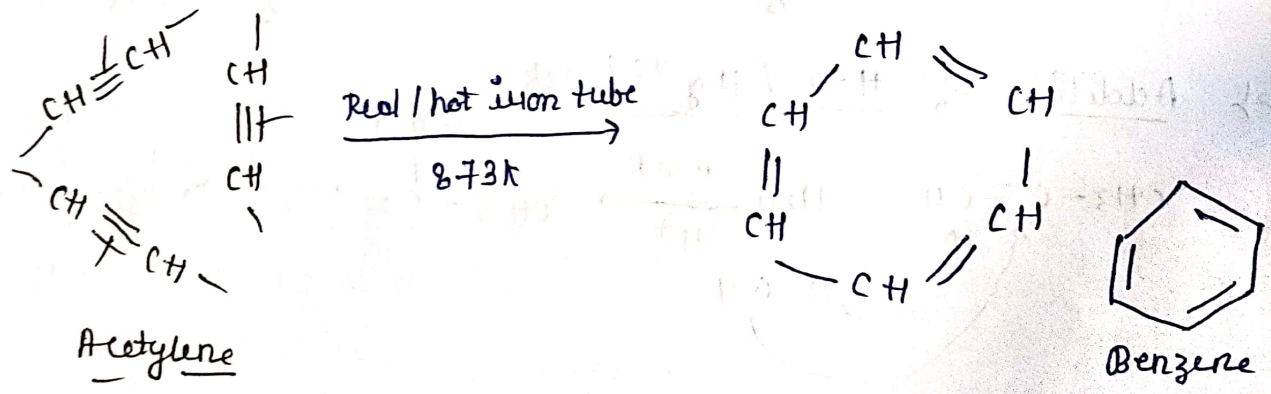 CH≡CH
CH
|||
CH
CH≡CH
Acetylene
Red / hot iron tube
873K
CH
CH
CH
CH
CH
CH
Benzene